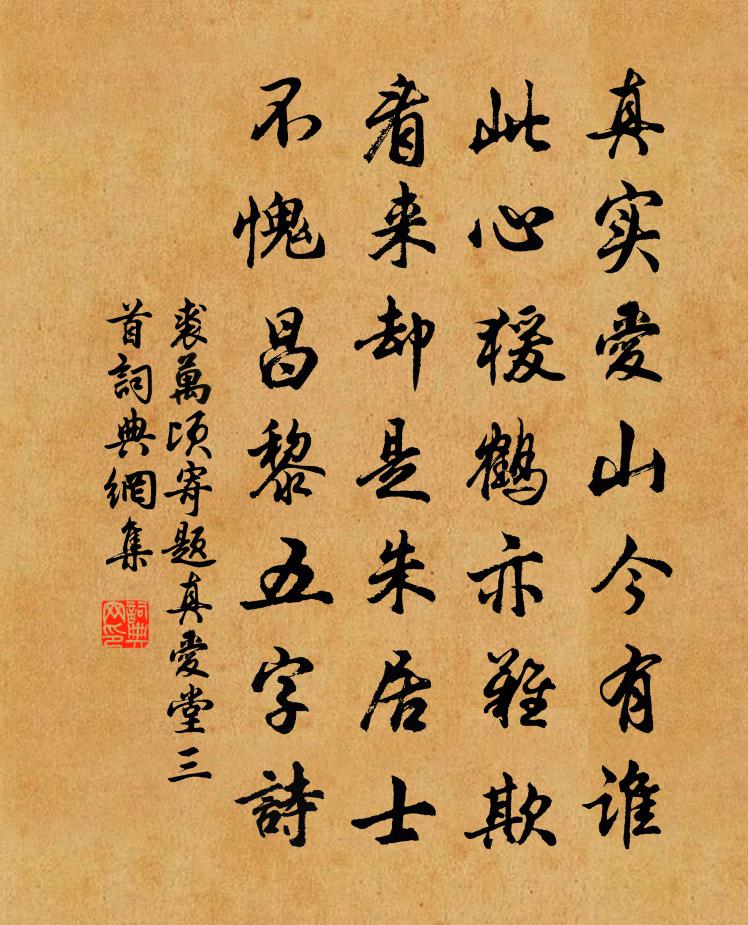 真实愛山今有谁
此心猨鶴亦難欺
看来却是朱居士
不愧昌黎五字詩
裘萬顷寄題真愛堂三
首詞典網集
詞典网印